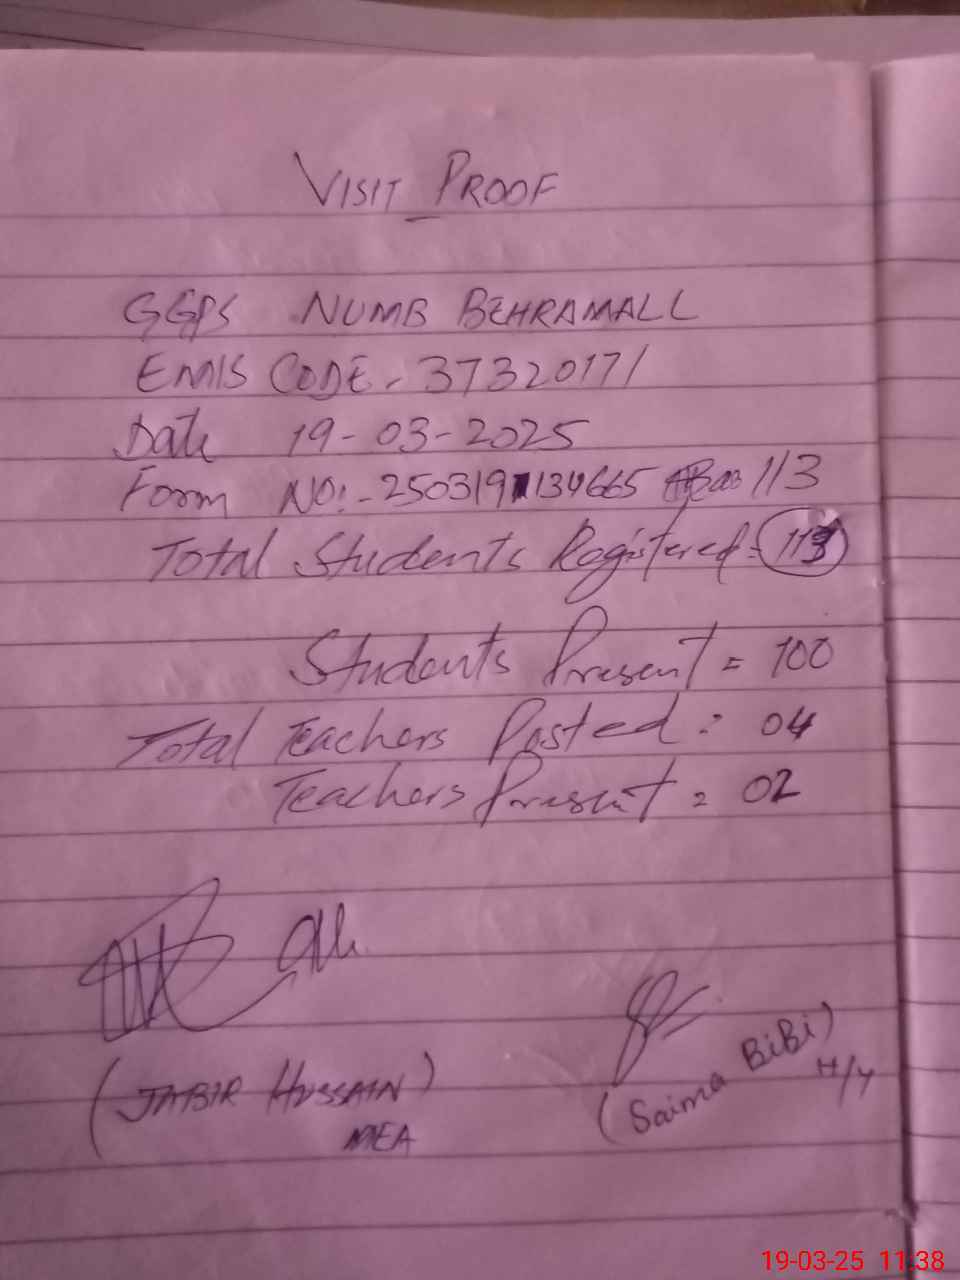 VISIT PROOF
GGPS NUMB BEHRAMALL
EMIS CODE - 37320171
Date 19-03-2025
Form NO:- 250319134665 113
Total Students Registered = 113
Students Present = 100
Total Teachers Posted : 04
Teachers Present = 02
(JABIR HUSSAIN)
MEA
(Saima BiBi)
H/T
19-03-25 11:38